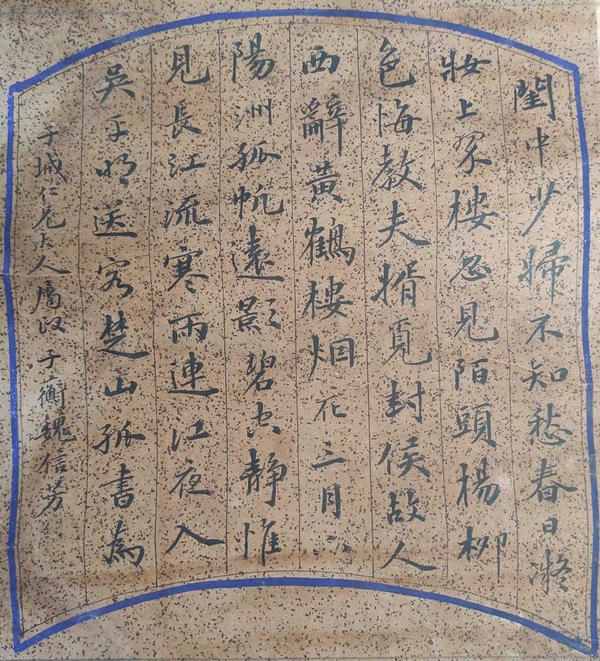 閨中少婦不知愁春日凝
妝上翠樓忽見陌頭楊柳
色悔教夫婿覓封侯故人
西辭黃鶴樓烟花三月下
陽洲孤帆遠影碧空靜惟
見長江流寒雨連江夜入
吳平明送客楚山孤書為
子城仁兄大人属政 子蘅魏信芳